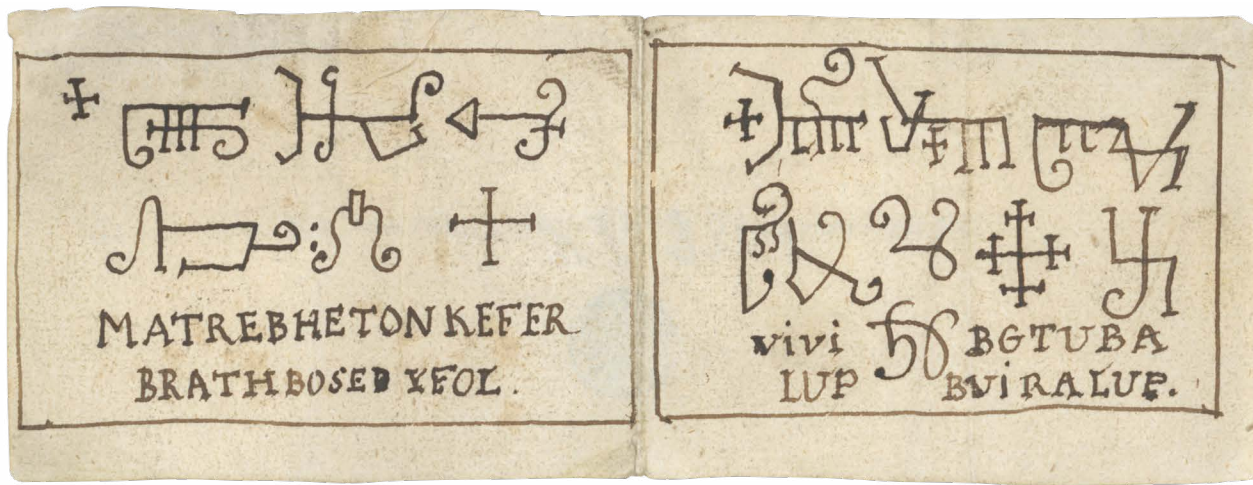 MATREBHETON KEFER
BRATHBOSED YFOL.
vivi BGTUBA
LUP BViRALUP.